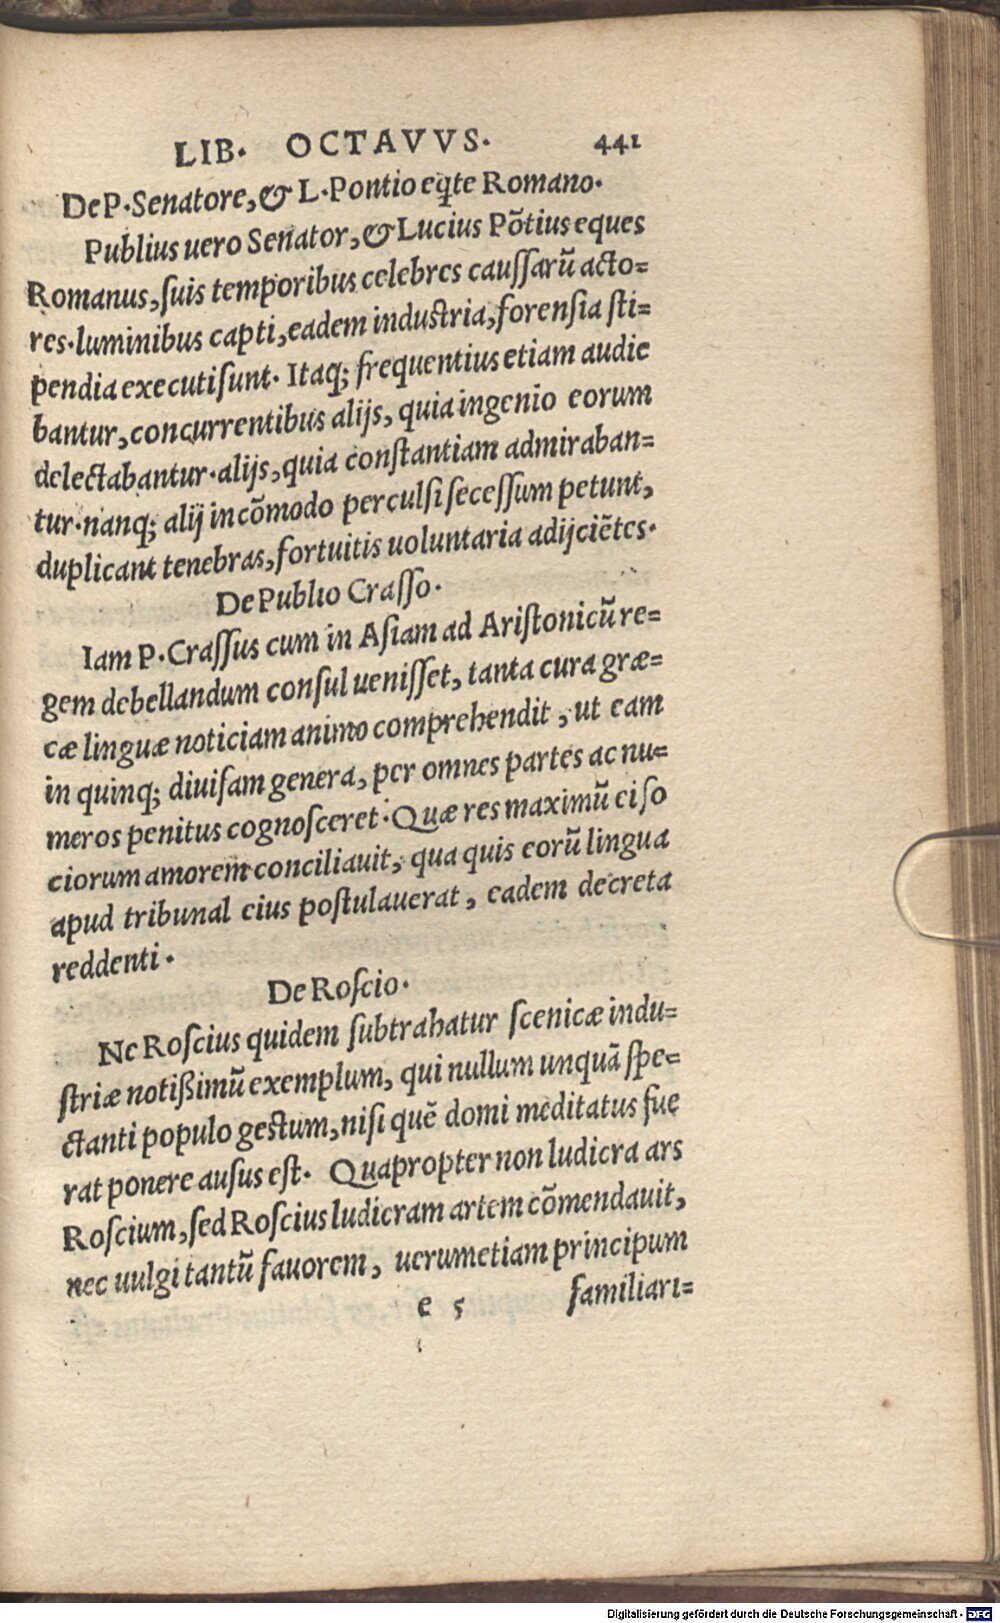 LIB. OCTAVVS. 441
De P. Senatore, & L. Pontio eq̃te Romano.
Publius uero Senator, & Lucius Põtius eques
Romanus, ſuis temporibus celebres cauſſarũ acto=
res. luminibus capti, eadem induſtria, forenſia ſti=
pendia executi ſunt. Itaq; frequentius etiam audie
bantur, concurrentibus alijs, quia ingenio eorum
delectabantur. alijs, quia conſtantiam admiraban=
tur. nanq; alij incõmodo perculſi ſeceſſum petunt,
duplicant tenebras, fortuitis uoluntaria adijciẽtes.
De Publio Craſſo.
Iam P. Craſſus cum in Aſiam ad Ariſtonicũ re=
gem debellandum conſul ueniſſet, tanta cura græ=
cæ linguæ noticiam animo comprehendit, ut eam
in quinq; diuiſam genera, per omnes partes ac nu=
meros penitus cognoſceret. Quæ res maximũ ei ſo
ciorum amorem conciliauit, qua quis eorũ lingua
apud tribunal eius poſtulauerat, eadem decreta
reddenti.
De Roſcio.
Ne Roſcius quidem ſubtrahatur ſcenicæ indu=
ſtriæ notißimũ exemplum, qui nullum unquã ſpe=
ctanti populo geſtum, niſi quẽ domi meditatus fue
rat ponere auſus eſt. Quapropter non ludicra ars
Roſcium, ſed Roſcius ludicram artem cõmendauit,
nec uulgi tantũ fauorem, uerumetiam principum
e 5 familiari=
Digitalisierung gefördert durch die Deutsche Forschungsgemeinschaft - DFG